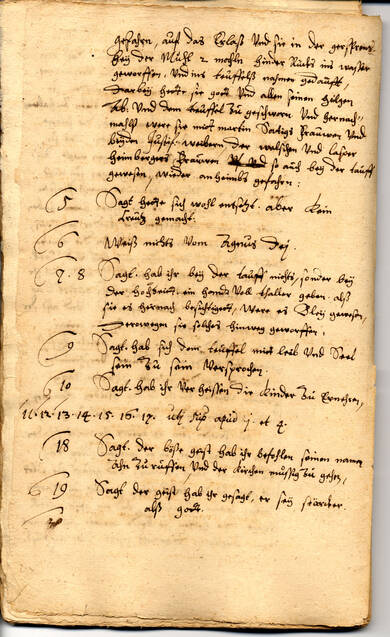 gefahren, auf das Erlaß Und sie in der gerspreng
bey der Mühl 2 mahln hinder Rucks ins wasser
geworffen, Und ins teuffelß nahmen gedaufft,
darbey hette sie gott Und allen seinen Heligen
ab: Und dem teuffel zu geschworn Und hernach-
mahlß were sie mit martin Frauwen Und
beyden weibern der walschen Und
heimbergers frauwen so auch bey der tauff
gewesen, wieder anheimbs gefahren:
5 Sagt hette sich wohl entsetzt. aber Kein
Creutz gemacht.
6 Weiß nichts Vom Agnus Dej.
7. 8 Sagt. hab ihr bey der tauff nichts, sonder bey
der Hochzeit ein handt Voll thaller geben. alß
sie es hernach besichtiget, were es Kley gewesen,
Derowegen sie solches hinweg geworffen.
9 Sagt. hab sich dem teuffel mitt leib Und Seel
sein zu sein Versprochen.
10 Sagt. hab ihr Verheissen die Kinder zu Ernehren,
11. 12. 13. 14. 15. 16. 17. utj sup apud j. et 4.
18 Sagt. der böße geist hab ihr befohlen seinen namen
ahn zu ruffen, Und der Kirchen mussig zu gehen,
19 Sagt der geist hab ihr gesagt, er sey stärcker.
alß gott.